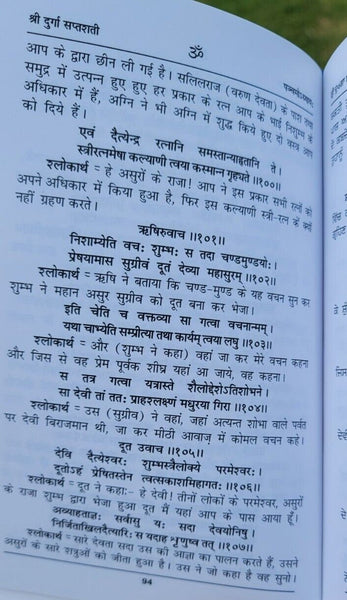 श्री दुर्गा सप्तशती
ॐ
आप के द्वारा छीन ली गई है। सलिलराज (वरुण देवता) के पाश तथा
समुद्र में उत्पन्न हुए हुए हर प्रकार के रत्न आप के भाई निशुम्भ के
अधिकार में हैं, अग्नि ने भी अग्नि में शुद्ध किये हुए दो वस्त्र आप
को दिये हैं।
एवं दैत्येन्द्र रत्नानि समस्तान्याहृतानि ते।
स्त्रीरत्नमेषा कल्याणी त्वया कस्मान्न गृह्यते ॥१००॥
श्लोकार्थ = हे असुरों के राजा! आप ने इस प्रकार सभी रत्नों को
अपने अधिकार में किया हुआ है, फिर इस कल्याणी स्त्री-रत्न के क्यों
नहीं ग्रहण करते।
ऋषिरुवाच ॥१०१॥
निशाम्येति वचः शुम्भः स तदा चण्डमुण्डयोः।
प्रेषयामास सुग्रीवं दूतं देव्या महासुरम् ॥१०२॥
श्लोकार्थ = ऋषि ने बताया कि चण्ड-मुण्ड के यह वचन सुन कर
शुम्भ ने महान असुर सुग्रीव को दूत बना कर भेजा।
इति चेति च वक्तव्या सा गत्वा वचनान्मम्।
यथा चाभ्येति सम्प्रीत्या तथा कार्यम् त्वया लघु ॥१०३॥
श्लोकार्थ = और (शुम्भ ने कहा) वहां जा कर मेरे वचन कहना
और जिस से वह प्रेम पूर्वक शीघ्र यहां आ जाये, वह कहना।
स तत्र गत्वा यत्रास्ते शैलोद्देशेऽतिशोभने।
सा देवी तां ततः प्राहश्लक्ष्णं मधुरया गिरा ॥१०४॥
श्लोकार्थ = उस (सुग्रीव) ने वहां, जहां अत्यन्त शोभा वाले पर्वत
पर देवी बिराजमान थी, जा कर मीठी आवाज़ में कोमल वचन कहे।
दूत उवाच ॥१०५॥
देवि दैत्येश्वरः शुम्भस्त्रैलोक्ये परमेश्वरः।
दूतोऽहं प्रेषितस्तेन त्वत्सकाशमिहागतः ॥१०६॥
श्लोकार्थ = दूत ने कहा:- हे देवी! तीनों लोकों के परमेश्वर, असुरों
के राजा शुम्भ द्वारा भेजा हुआ दूत मैं यहां आप के पास आया हूँ।
अव्याहताज्ञः सर्वासु यः सदा देवयोनिषु।
निर्जिताखिलदैत्यारिः स यदाह श्रृणुष्व तत् ॥१०७॥
श्लोकार्थ = सारे देवता सदा उस की आज्ञा का पालन करते हैं, उसने
असुरों के सारे शत्रुओं को जीता हुआ है। उस ने जो कहा है वह सुनो।
94